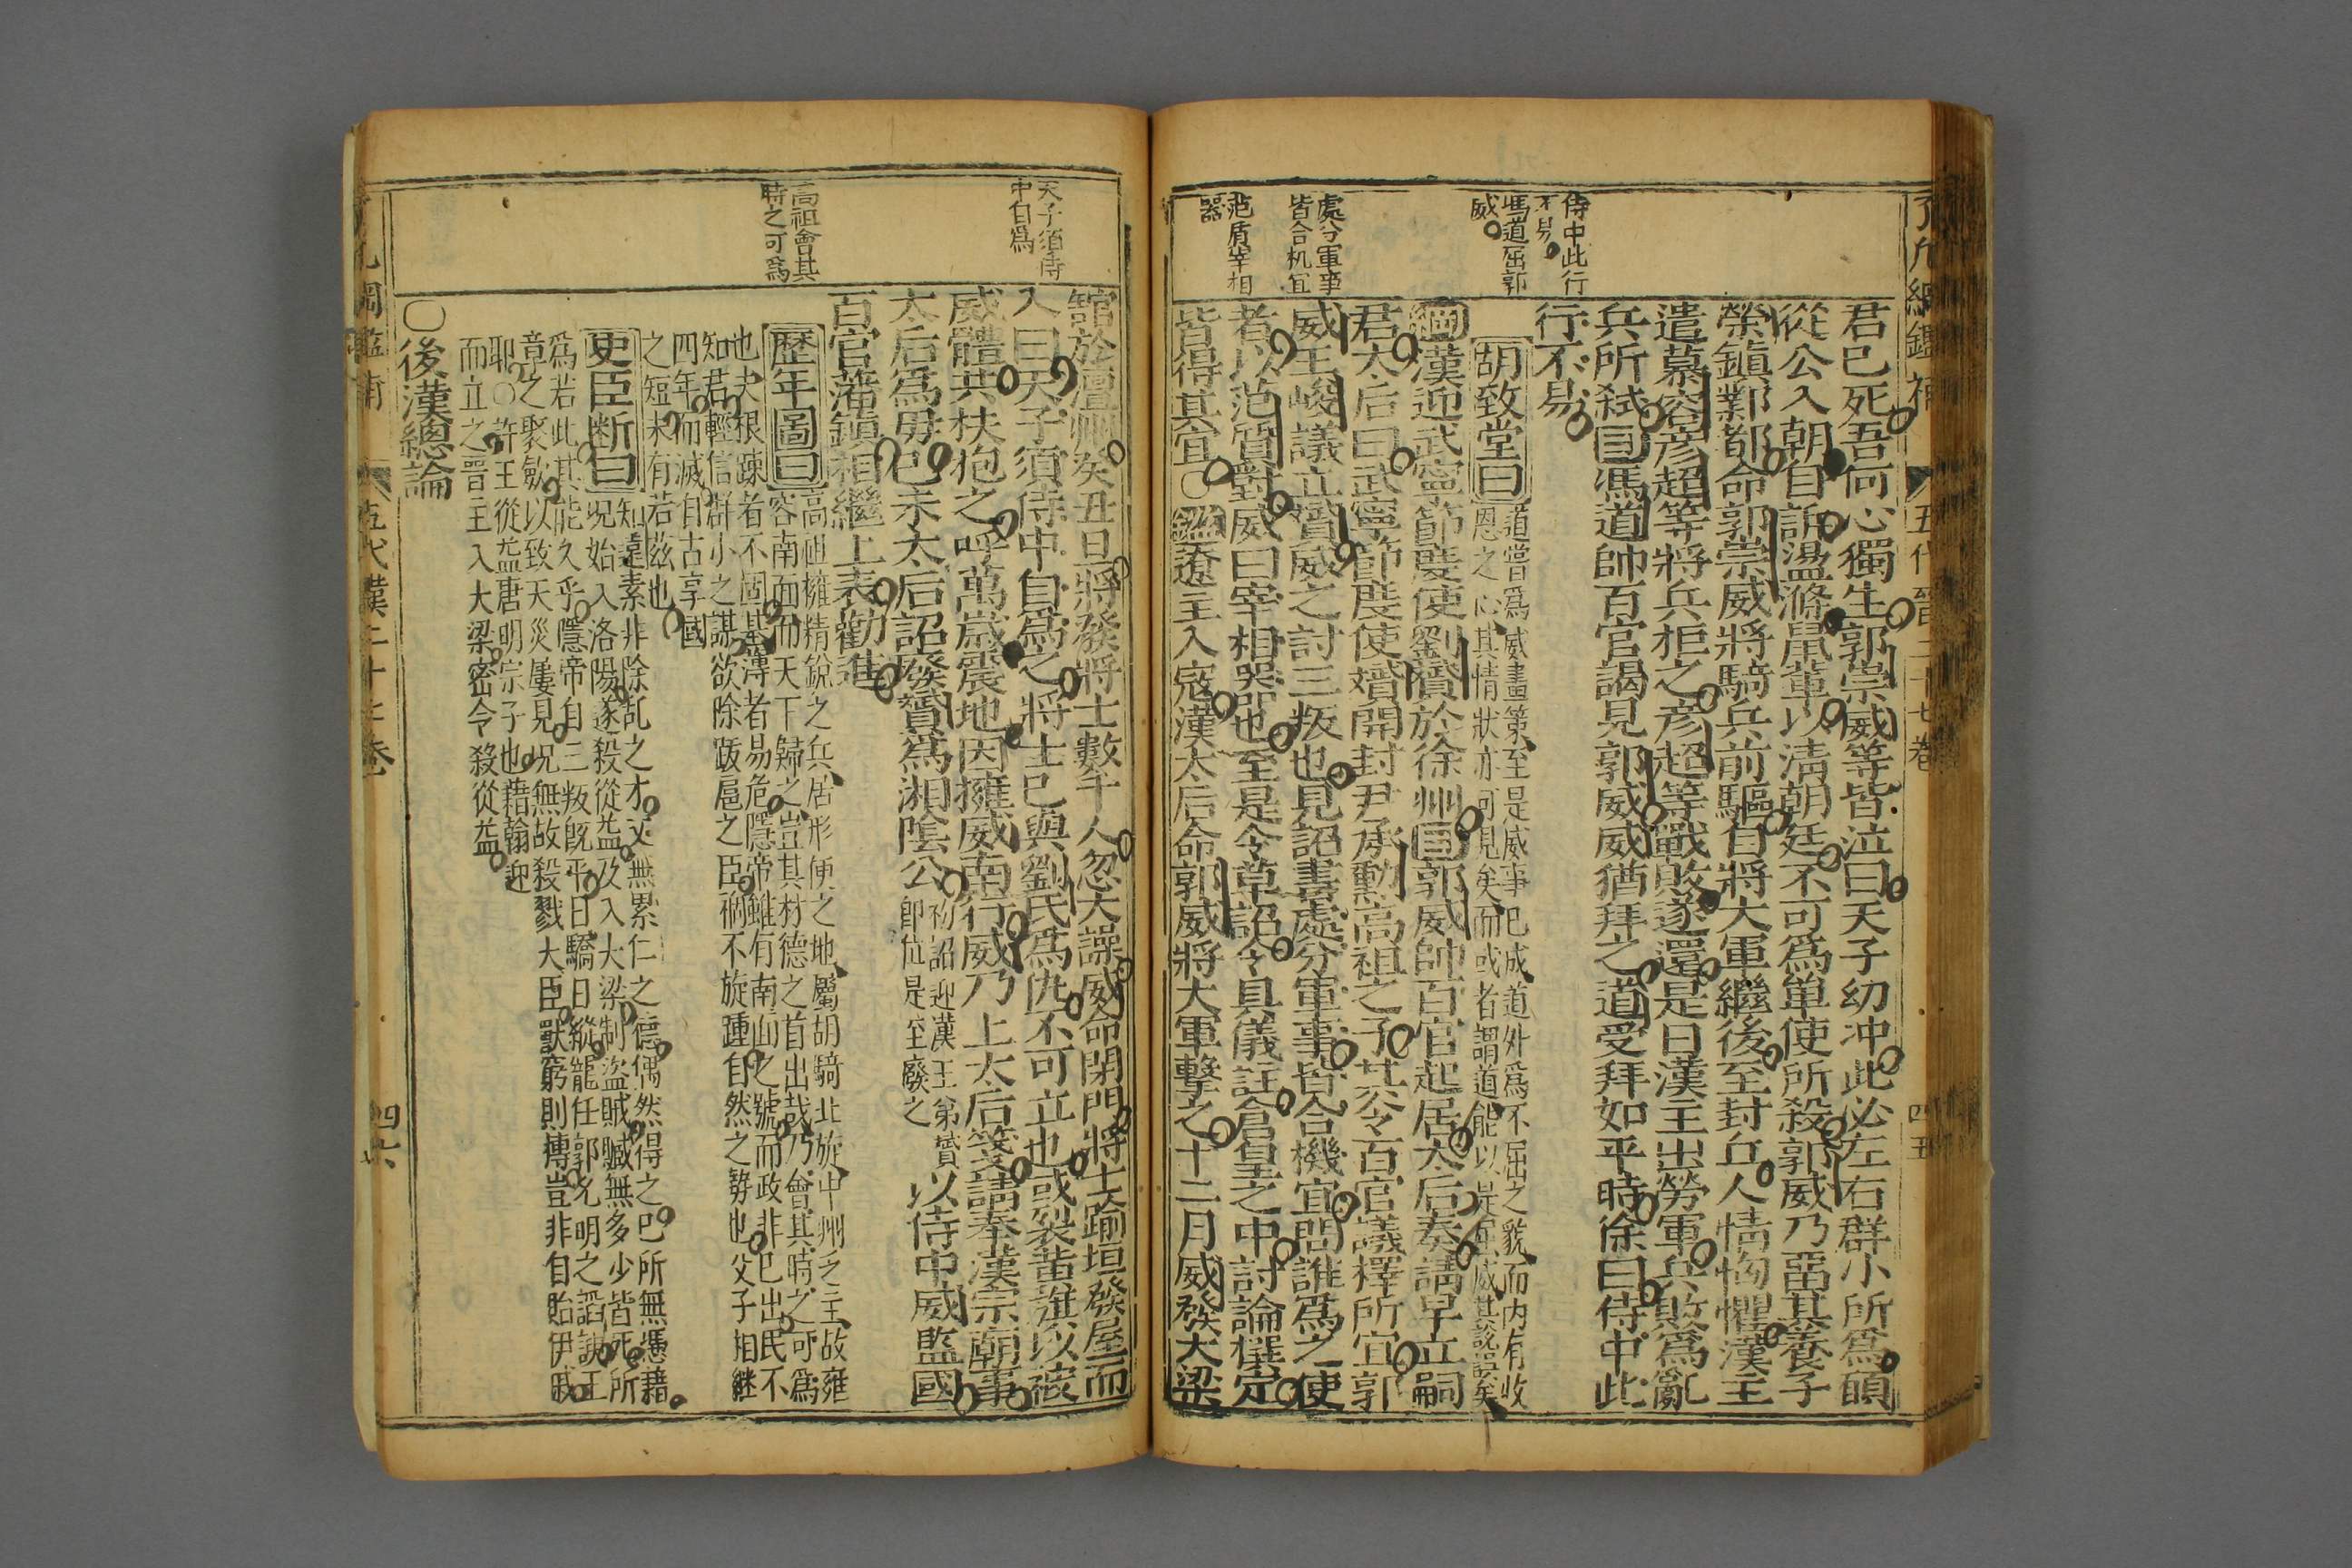 侍中此行
不易
馮道屈郭
威
處分軍事
皆合机宜
范質宰相
器
君已死吾何心獨生郭崇威等皆泣曰天子幼冲此必左右群小所爲願
從公入朝自訴盪滌鼠輩以淸朝廷不可爲單使所殺郭威乃畱其養子
榮鎭鄴都命郭崇威將騎兵前驅自將大軍繼後至封丘人情恟懼漢主
遣慕容彦超等將兵拒之彦超等戰敗遂還是日漢主出勞軍兵敗爲亂
兵所弑目馮道帥百官謁見郭威威猶拜之道受拜如平時徐曰侍中此
行不易
胡致堂曰道嘗爲威畫第至是威事已成道外爲不屈之貌而内有收
恩之心其情狀亦可見矣而或者謂道能以是屈威其說誤矣
綱漢迎武寧節度使劉贇於徐州目郭威帥百官起居太后奏請早立嗣
君太后曰武寧節度使贇開封尹承勳高祖之子其令百官議擇所宜郭
威王峻議立贇威之討三叛也見詔書處分軍事皆合機宜問誰爲之使
者以范質對威曰宰相器也至是令草詔令具儀註倉皇之中討論撰定
皆得其宜〇鑑遼主入寇漢太后命郭威將大軍擊之十二月威發大梁
五代晉二十七卷
四五
天子須侍
中自爲
高祖會其
時之可爲
館於澶州癸丑旦將發將士數千人忽大譟威命閉門將士踰垣發屋而
入曰天子須侍中自爲之將士已與劉氏爲仇不可立也或裂黄旗以被
威體共扶抱之呼萬歲震地因擁威南行威乃上太后箋請奉漢宗廟事
太后爲母已未太后詔廢贇爲湘陰公初詔迎漢王弟贇
即位是至廢之以侍中威監國
百官藩鎭相繼上表勸進
歷年圖曰高祖擁精銳之兵居形便之地屬胡騎北旋中州乏主故雍
容南面而天下歸之豈其材德之首出哉乃會其時之可爲
也夫根踈者不固基薄者易危隱帝雖有南面之號而政非已出民不
知君輕信群小之謀欲除跋扈之臣禍不旋踵自然之勢也父子相継
四年而滅自古享國
之短未有若兹也
史臣断曰知遠素非除乱之才又無累仁之德偶然得之已所無憑藉
况始入洛陽遂殺從益及入大梁制盗賊贓無多少皆死所
爲若此其能久乎隱帝自三叛旣平日驕日縱寵任郭允明之謟諛王
章之聚斂以致天災屢見况無故殺戮大臣獸窮則摶豈非自貽伊戚
耶〇許王從益唐明宗子也藉翰迎
而立之晉主入大梁密令殺從益
〇後漢總論
五代漢二十七卷
四六